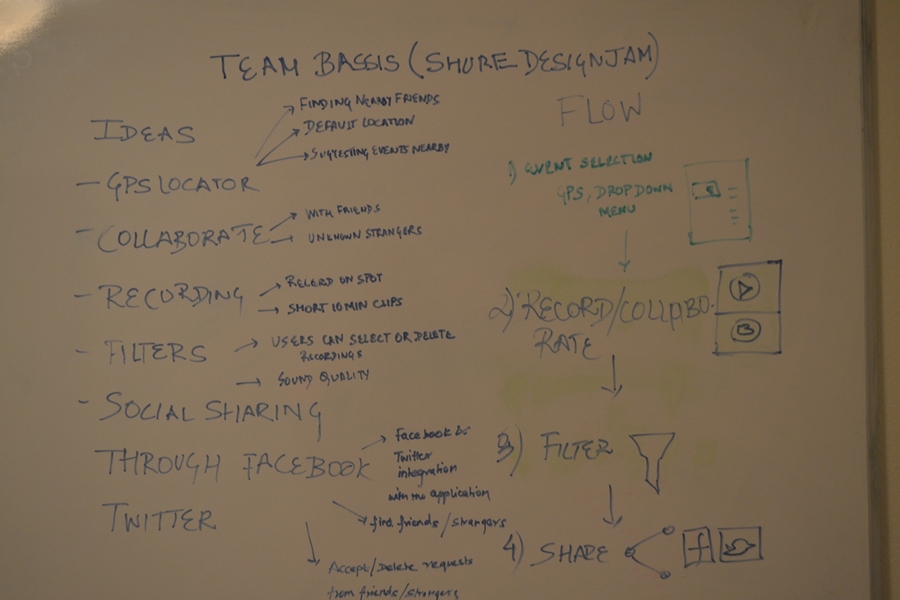 TEAM BASSIS (SHURE DESIGNJAM)
IDEAS
- GPS LOCATOR
FINDING NEARBY FRIENDS
DEFAULT LOCATION
SUGGESTING EVENTS NEARBY
- COLLABORATE
WITH FRIENDS
UNKNOWN STRANGERS
- RECORDING
RECORD ON SPOT
SHORT 10 MIN CLIPS
- FILTERS
USERS CAN SELECT OR DELETE
RECORDINGS
SOUND QUALITY
- SOCIAL SHARING
THROUGH FACEBOOK
TWITTER
Facebook &
Twitter
integration
with the application
find friends/strangers
Accept/Delete requests
from friends/strangers
FLOW
1) EVENT SELECTION
GPS, DROPDOWN
MENU
2) RECORD/COLLABO-
RATE
3) FILTER
4) SHARE
f